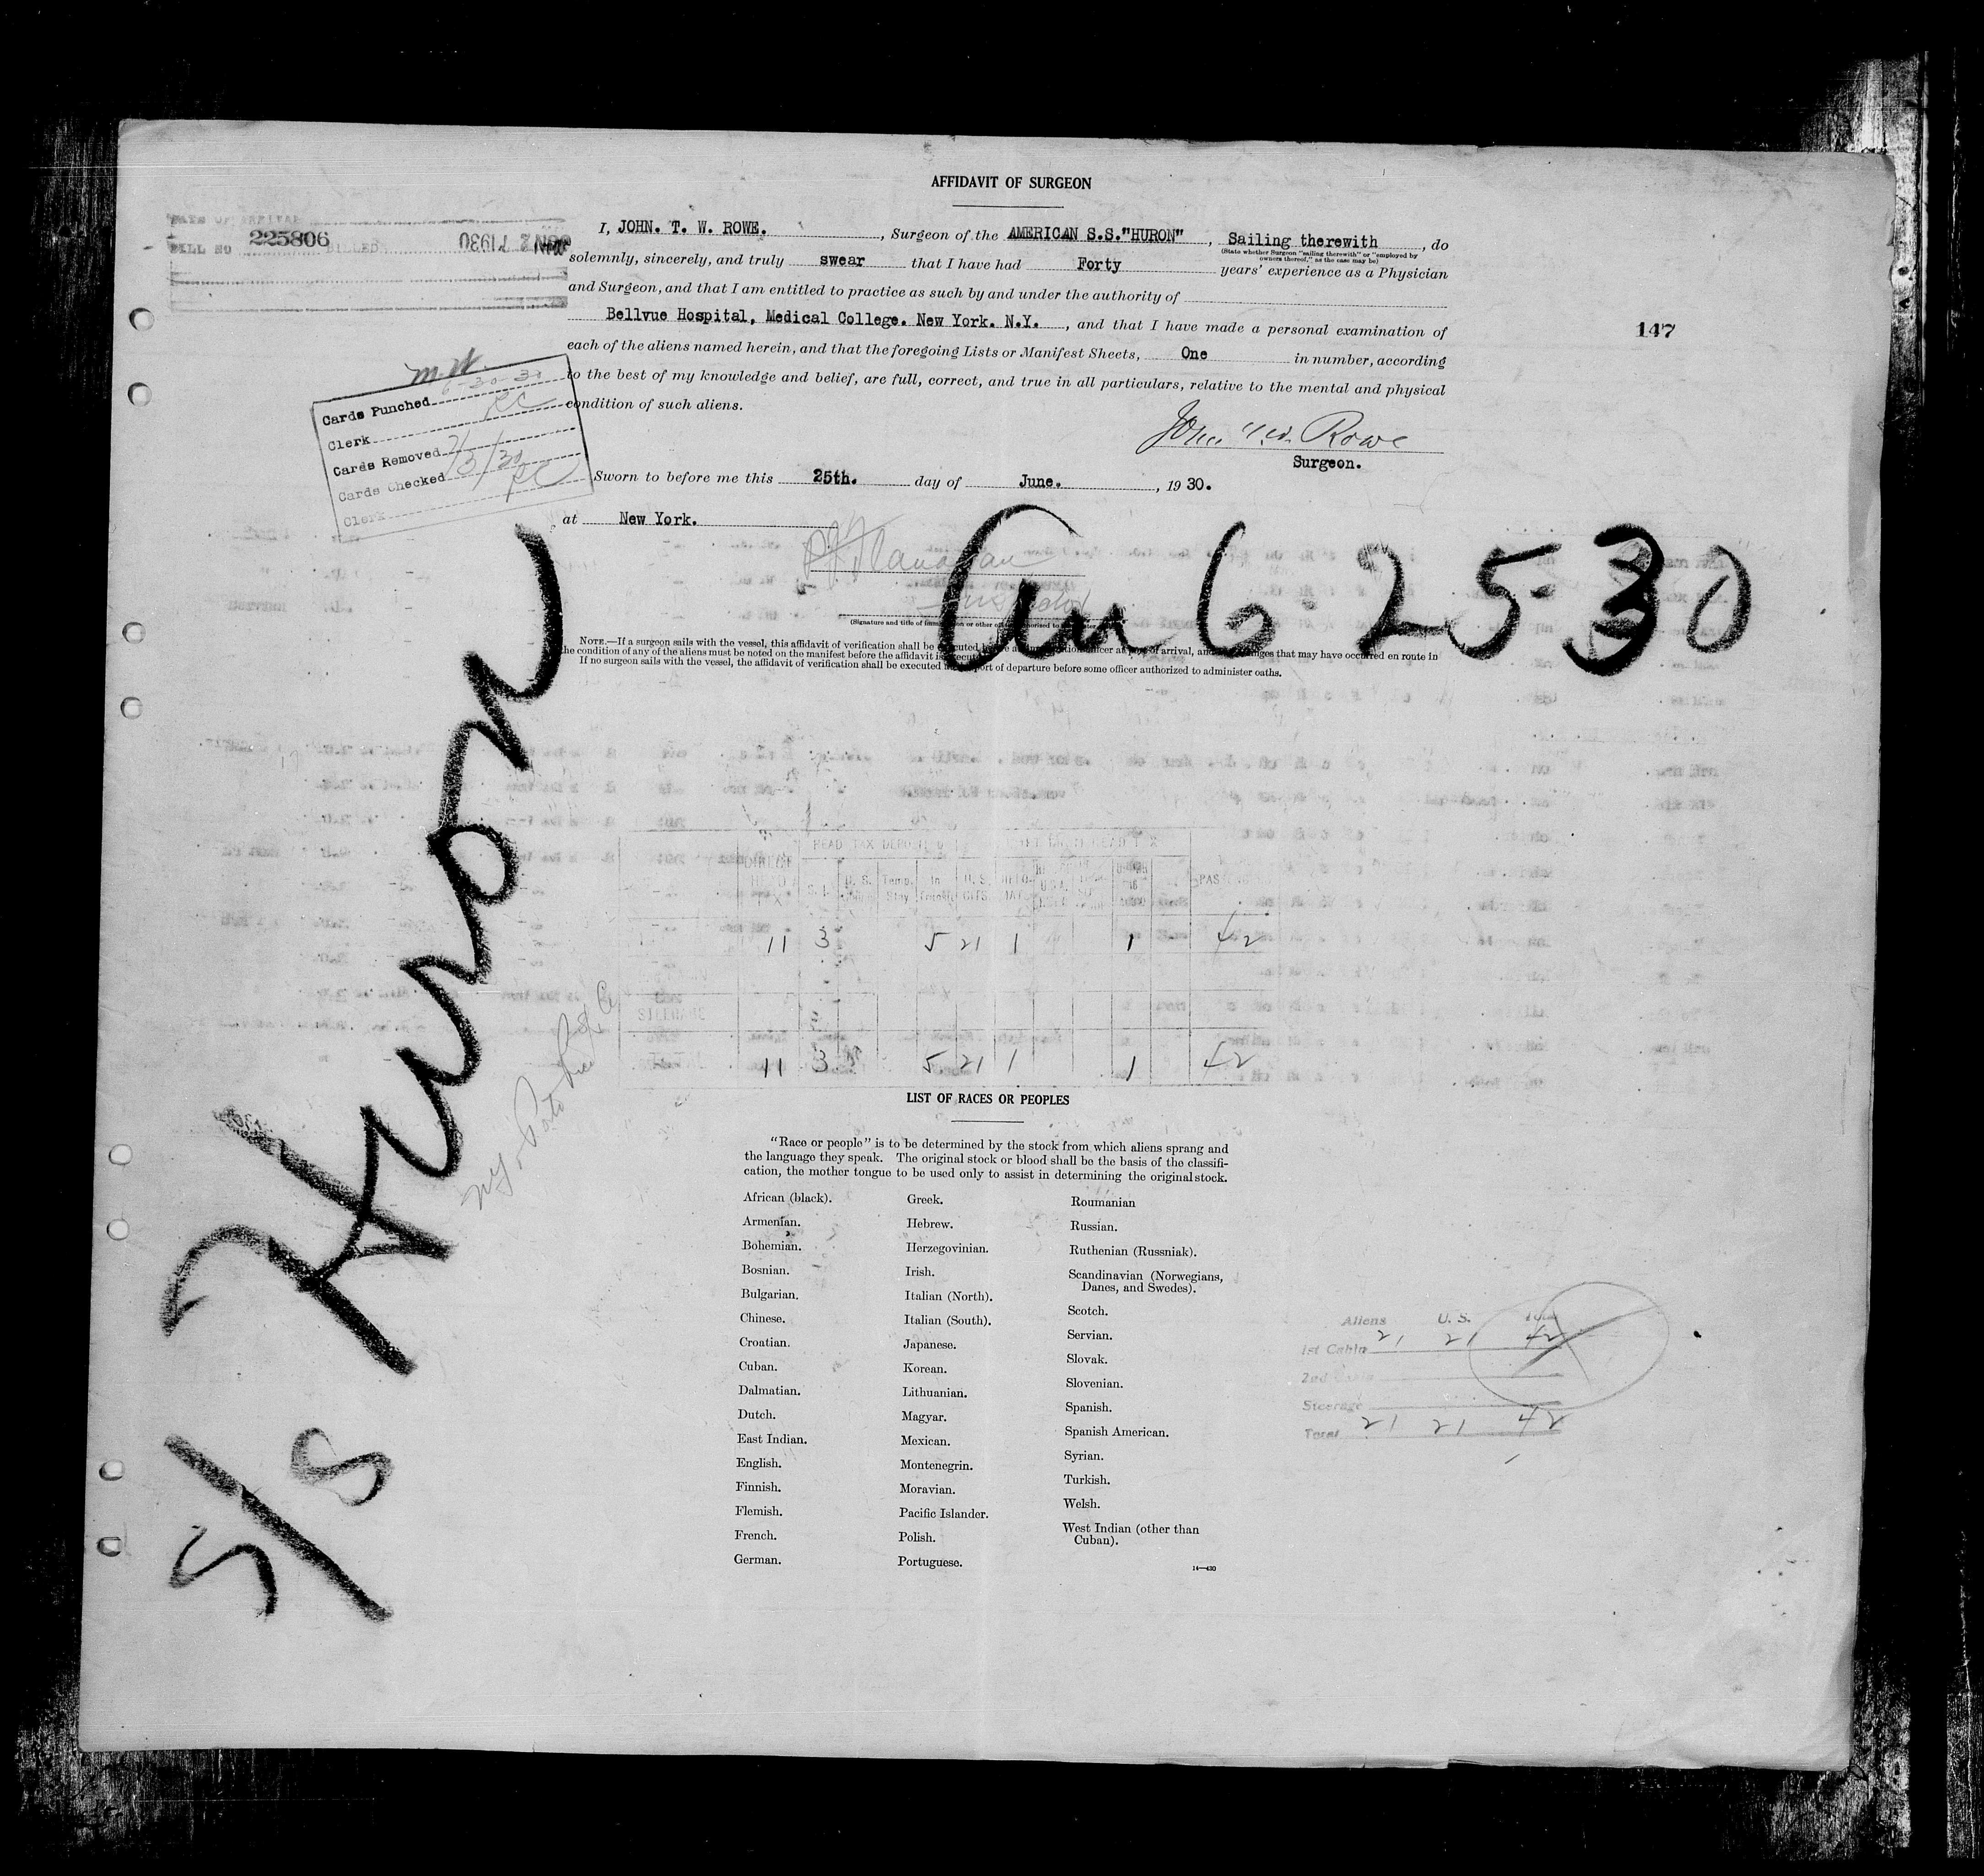 AFFIDAVIT OF SURGEON
DATE OF ARRIVAL
BILL NO 225806 BILLED
I, JOHN. T. W. ROWE. , Surgeon of the AMERICAN S.S."HURON" , Sailing therewith , do
(State whether Surgeon "sailing therewith" or "employed by
owners thereof," as the case may be)
solemnly, sincerely, and truly swear that I have had Forty years' experience as a Physician
and Surgeon, and that I am entitled to practice as such by and under the authority of
Bellvue Hospital, Medical College. New York. N.Y. , and that I have made a personal examination of
147
each of the aliens named herein, and that the foregoing Lists or Manifest Sheets, One in number, according
to the best of my knowledge and belief, are full, correct, and true in all particulars, relative to the mental and physical
condition of such aliens.
Cards Punched 6-30-30
Clerk RC
Cards Removed
Cards Checked
Clerk
John T.W. Rowe
Surgeon.
Sworn to before me this 25th. day of June. , 19 30.
at New York.
Inspector
(Signature and title of immigration or other officer authorized to
Arr 6-25-30
NOTE.—If a surgeon sails with the vessel, this affidavit of verification shall be executed before an immigration officer at port of arrival, and changes that may have occurred en route in
the condition of any of the aliens must be noted on the manifest before the affidavit is executed
If no surgeon sails with the vessel, the affidavit of verification shall be executed port of departure before some officer authorized to administer oaths.
S/S Huron
HEAD TAX DEPOSIT
11 3 5 21 1 1 42
STEERAGE
11 3 5 21 1 1 42
LIST OF RACES OR PEOPLES
"Race or people" is to be determined by the stock from which aliens sprang and
the language they speak. The original stock or blood shall be the basis of the classifi-
cation, the mother tongue to be used only to assist in determining the original stock.
African (black).
Armenian.
Bohemian.
Bosnian.
Bulgarian.
Chinese.
Croatian.
Cuban.
Dalmatian.
Dutch.
East Indian.
English.
Finnish.
Flemish.
French.
German.
Greek.
Hebrew.
Herzegovinian.
Irish.
Italian (North).
Italian (South).
Japanese.
Korean.
Lithuanian.
Magyar.
Mexican.
Montenegrin.
Moravian.
Pacific Islander.
Polish.
Portuguese.
Roumanian
Russian.
Ruthenian (Russniak).
Scandinavian (Norwegians,
Danes, and Swedes).
Scotch.
Servian.
Slovak.
Slovenian.
Spanish.
Spanish American.
Syrian.
Turkish.
Welsh.
West Indian (other than
Cuban).
14—430
Aliens U. S. Total
1st Cabin 21 21 42
2nd Cabin
Steerage
Total 21 21 42